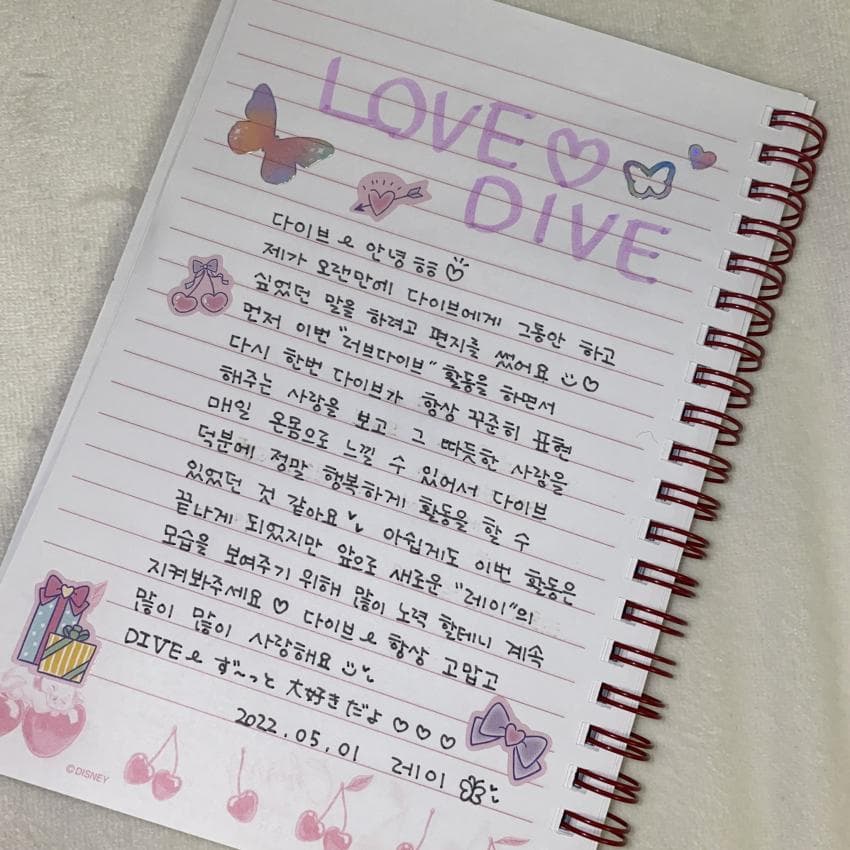 LOVE♡
DIVE
다이브으 안녕ㅎㅎ♡
제가 오랜만에 다이브에게 그동안 하고
싶었던 말을 하려고 편지를 썼어요 ♡
먼저 이번 "러브다이브" 활동을 하면서
다시 한번 다이브가 항상 꾸준히 표현
해주는 사랑을 보고 그 따듯한 사람을
매일 온몸으로 느낄 수 있어서 다이브
덕분에 정말 행복하게 활동을 할 수
있었던 것 같아요 아쉽게도 이번 활동은
끝나게 되었지만 앞으로 새로운 "레이"의
모습을 보여주기 위해 많이 노력 할테니 계속
지켜봐주세요 ♡ 다이브으 항상 고맙고
많이 많이 사랑해요
DIVE으 ず~っと 大好きだよ ♡♡♡
2022.05.01 레이
©DISNEY